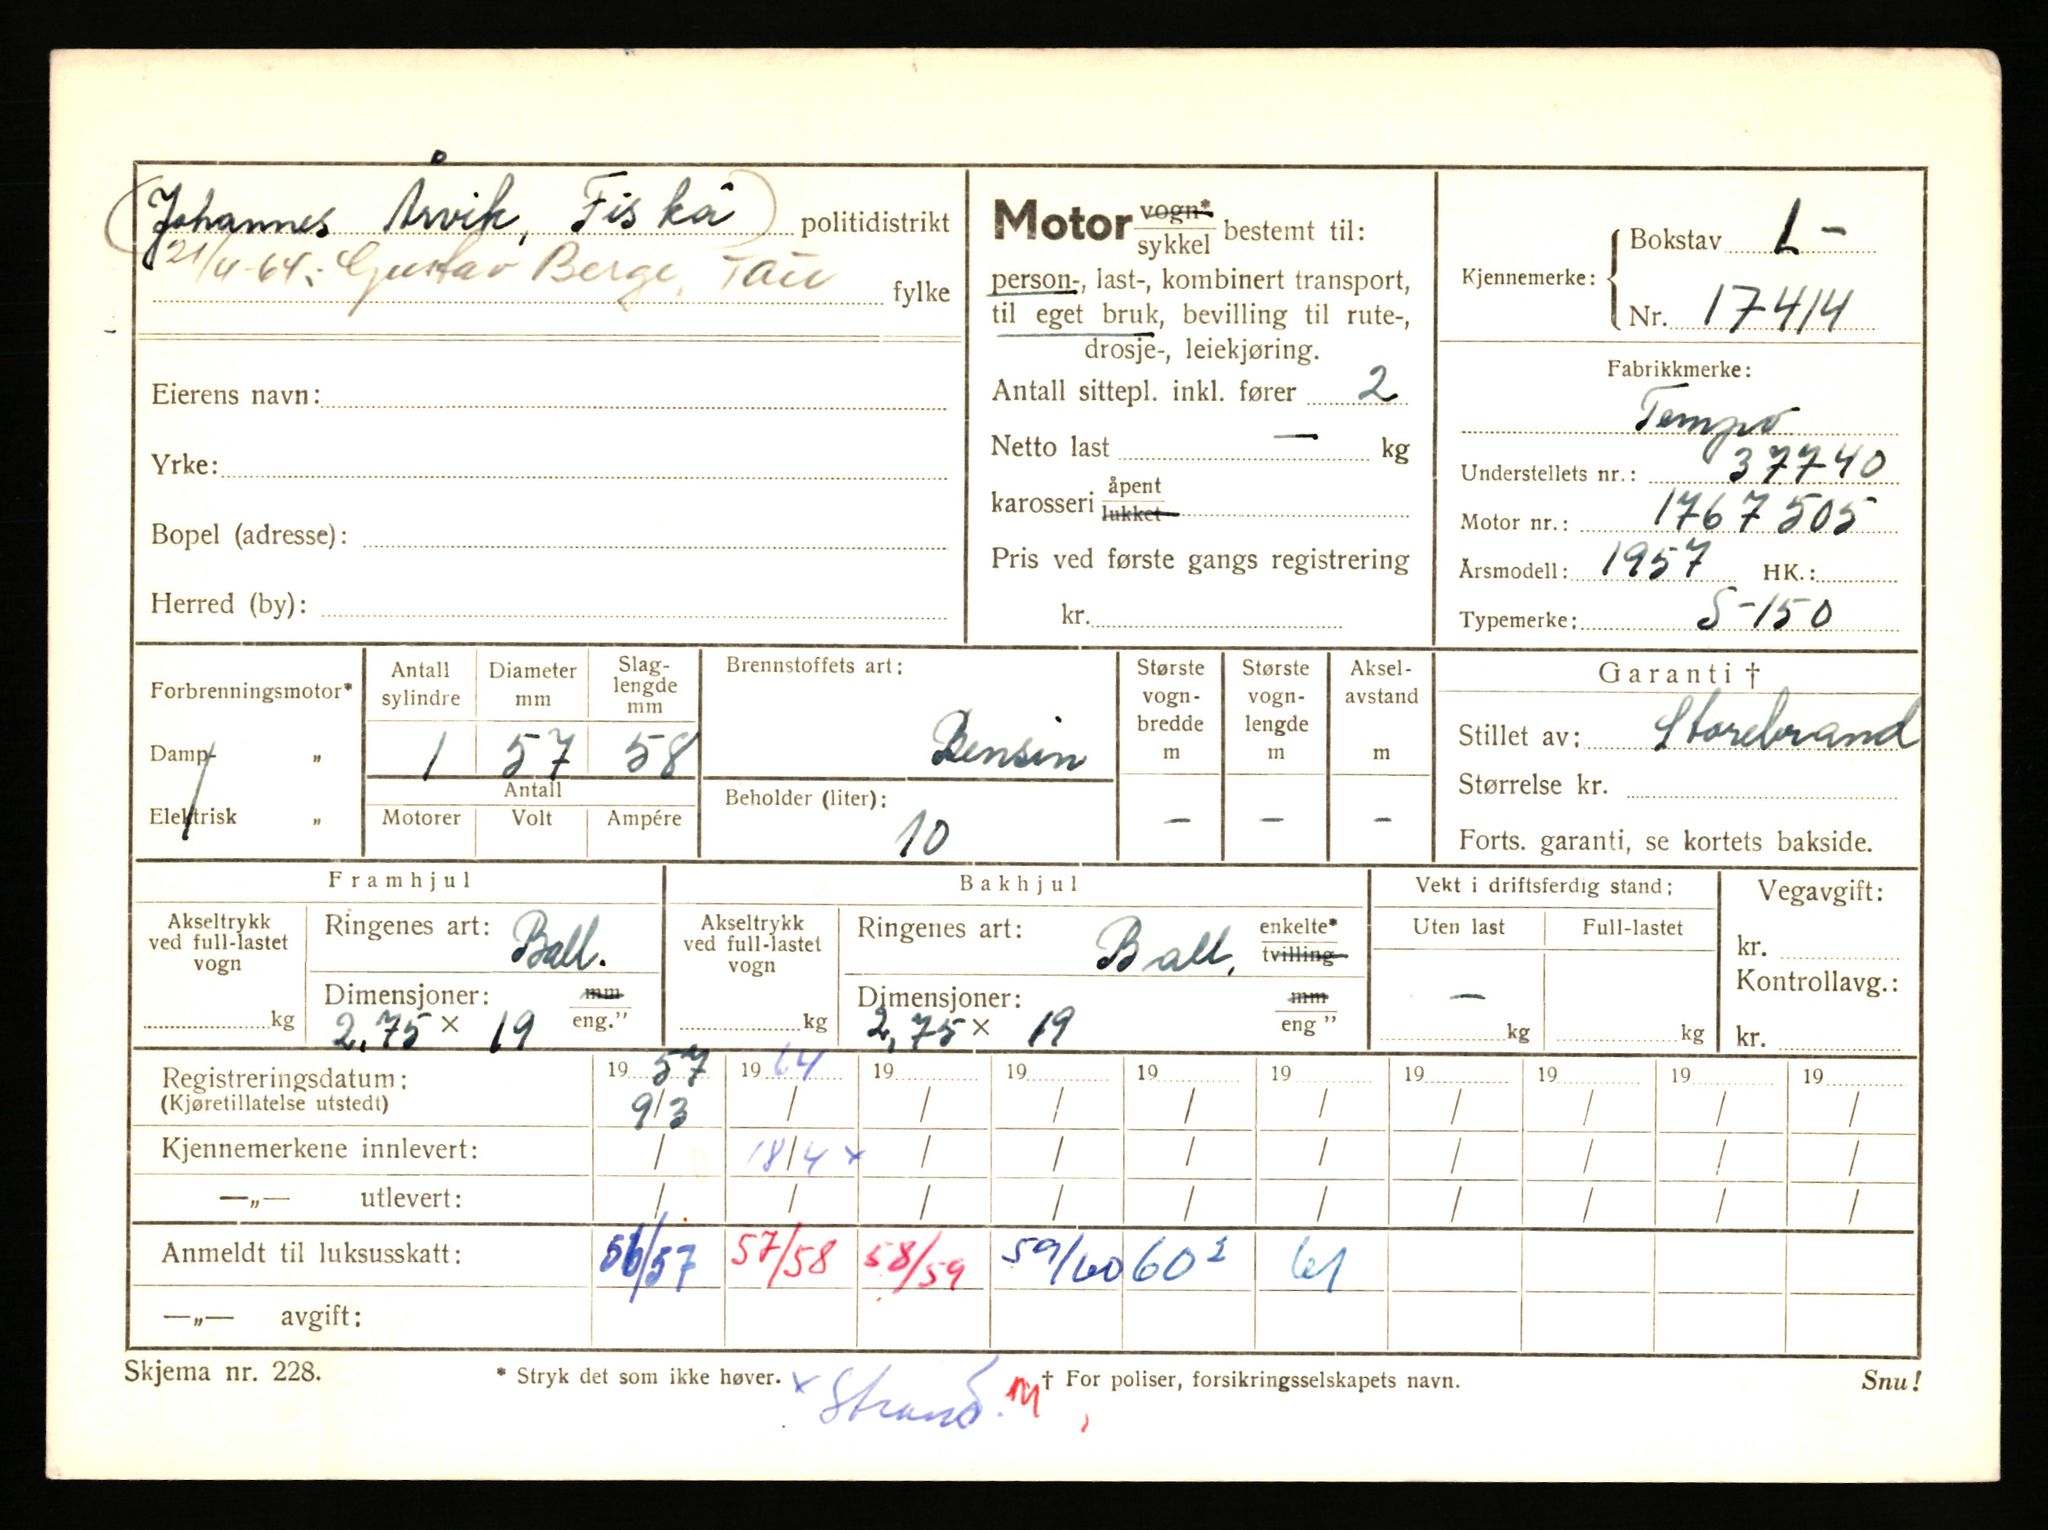 Johannes Årvik, Fiskå politidistrikt
21/4-64: Gustav Berge, Tau fylke
Eierens navn:
Yrke:
Bopel (adresse):
Herred (by):
Motor vogn* sykkel bestemt til:
person-, last-, kombinert transport,
til eget bruk, bevilling til rute-,
drosje-, leiekjøring.
Antall sittepl. inkl. fører 2
Netto last — kg
karosseri åpent lukket
Pris ved første gangs registrering
kr.
Kjennemerke: Bokstav L -
Nr. 17414
Fabrikkmerke:
Tempo
Understellets nr.: 37740
Motor nr.: 1767505
Årsmodell: 1957 HK.:
Typemerke: S-150
Forbrenningsmotor*
Damp- „
Elektrisk „
Antall sylindre
Diameter mm
Slag-lengde mm
1 57 58
Antall
Motorer Volt Ampére
Brennstoffets art:
Bensin
Beholder (liter):
10
Største vogn-bredde m
Største vogn-lengde m
Aksel-avstand m
— — —
Garanti †
Stillet av: Storebrand
Størrelse kr.
Forts. garanti, se kortets bakside.
Framhjul
Akseltrykk ved full-lastet vogn
kg
Ringenes art: Ball.
Dimensjoner: mm eng.”
2,75 × 19
Bakhjul
Akseltrykk ved full-lastet vogn
kg
Ringenes art: Ball. enkelte* tvilling
Dimensjoner: mm eng ”
2,75 × 19
Vekt i driftsferdig stand:
Uten last Full-lastet
—
kg kg
Vegavgift:
kr.
Kontrollavg.:
kr.
Registreringsdatum: 19 57 19 64 19 19 19 19 19 19 19 19
(Kjøretillatelse utstedt) 9/3 / / / / / / / / /
Kjennemerkene innlevert: / 18/4 × / / / / / / / /
—„— utlevert: / / / / / / / / / /
Anmeldt til luksusskatt: 56/57 57/58 58/59 59/60 60² 61
—„— avgift:
Skjema nr. 228. * Stryk det som ikke høver. † For poliser, forsikringsselskapets navn. Snu!
× Strand. M